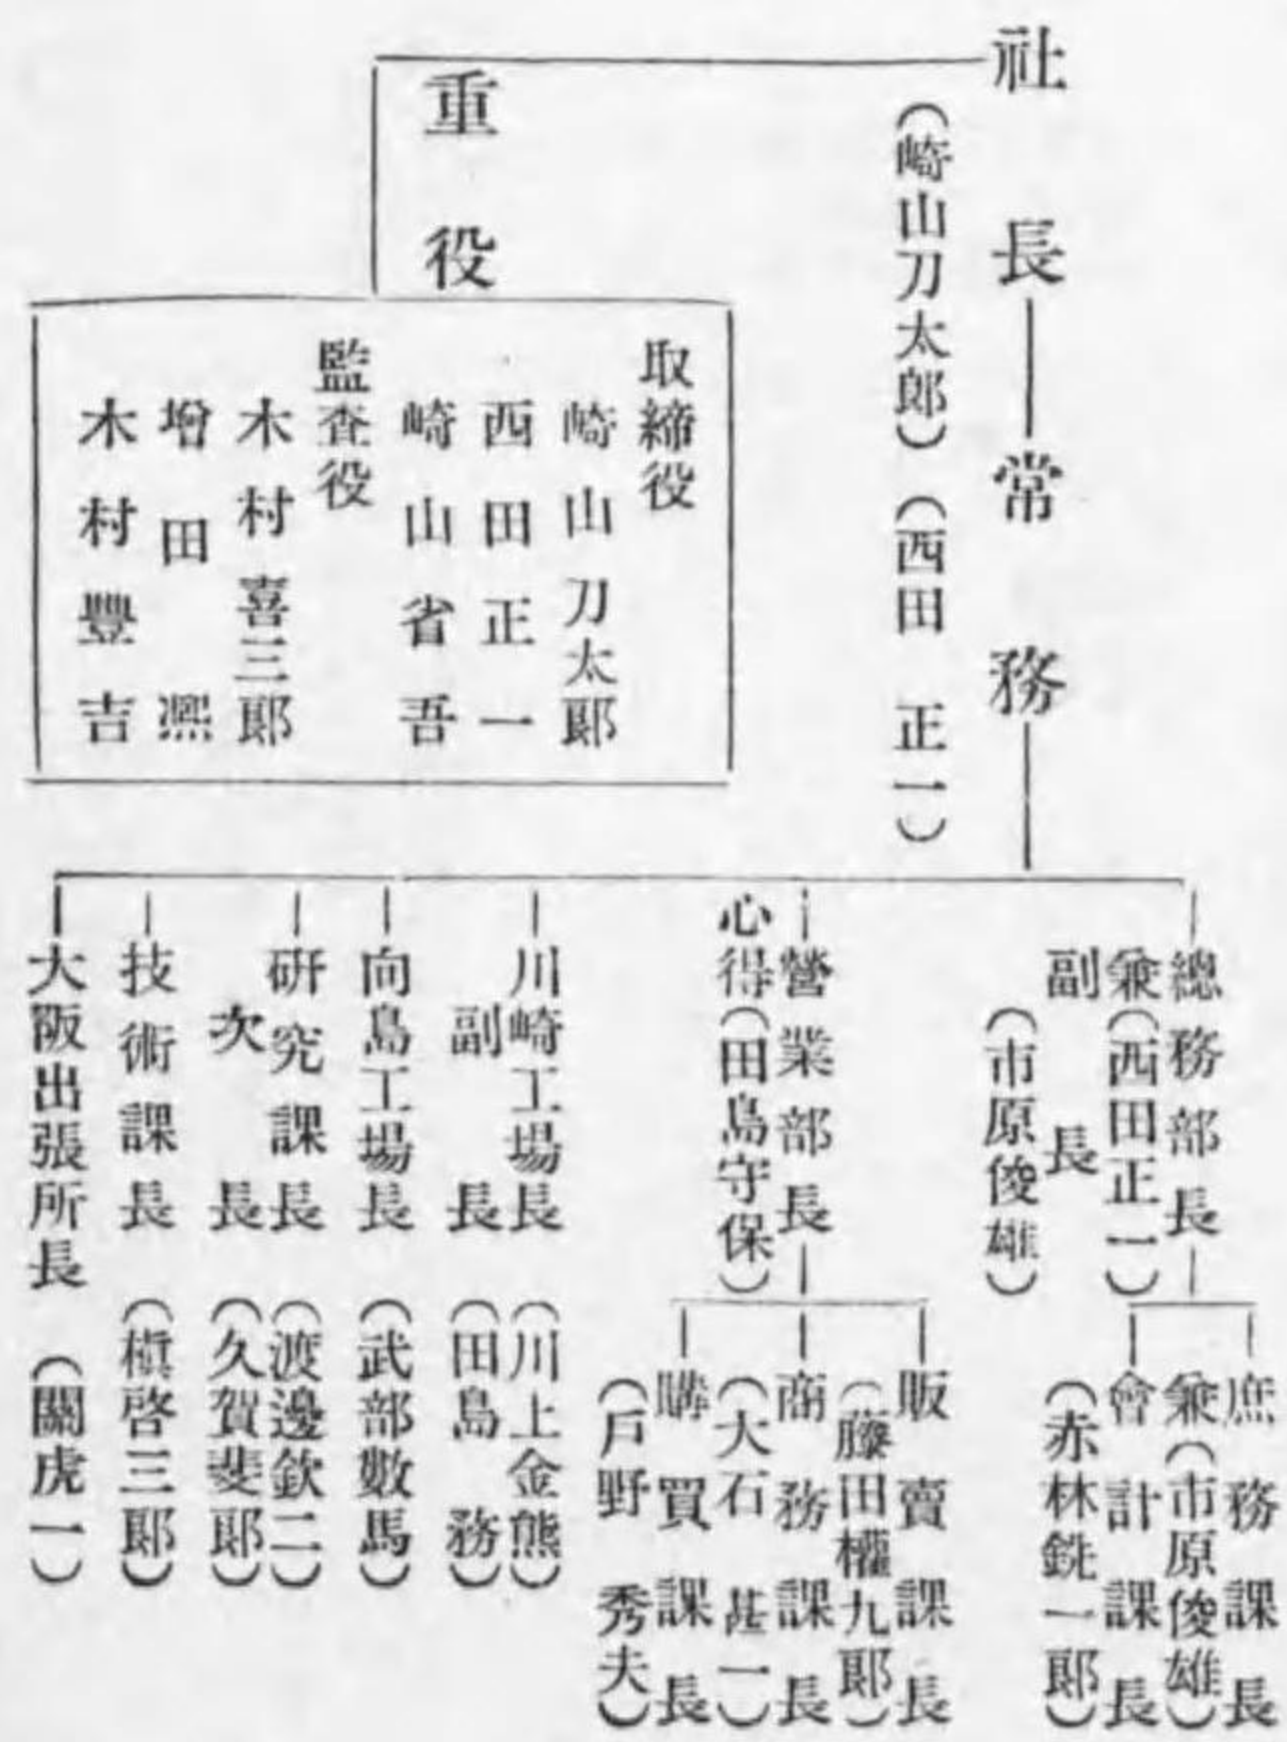 社長―常務
(崎山刀太郎)(西田 正一)
重役
取締役
崎山刀太郎
西田正一
崎山省吾
監査役
木村喜三郎
增田凞
木村豐吉
總務部長
兼(西田正一)
副長
(市原俊雄)
庶務課長
兼(市原俊雄)
會計課長
(赤林銑一郎)
營業部長
心得(田島守保)
販賣課長
(藤田權九郎)
商務課長
(大石甚一)
購買課長
(戶野秀夫)
川崎工場長(川上金熊)
副長(田島務)
向島工場長(武部數馬)
硏究課長(渡邊欽二)
次長(久賀斐郎)
技術課長(槇啓三郎)
大阪出張所長(關虎一)